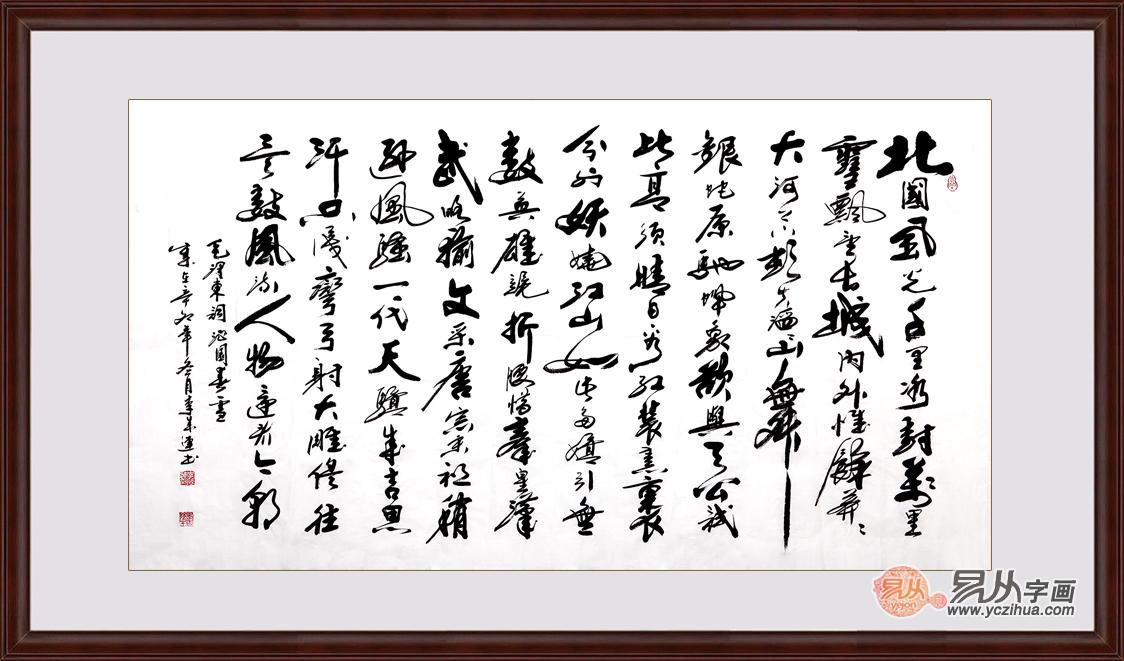 北國風光千里冰封萬里
雪飄望長城內外惟餘莽〻
大河上下頓失滔〻山舞
銀蛇原馳蠟象欲與天公試
比高須晴日看紅裝素裹
分外妖嬈江山如此多嬌引無
數英雄競折腰惜秦皇漢
武略輸文采唐宗宋祖稍
遜風騷一代天驕成吉思
汗只識彎弓射大雕俱往
矣數風流人物還看今朝
毛澤東詞沁園春雪
歲在辛卯年冬月李成連书
易从
yejon
易从字画
www.yczihua.com